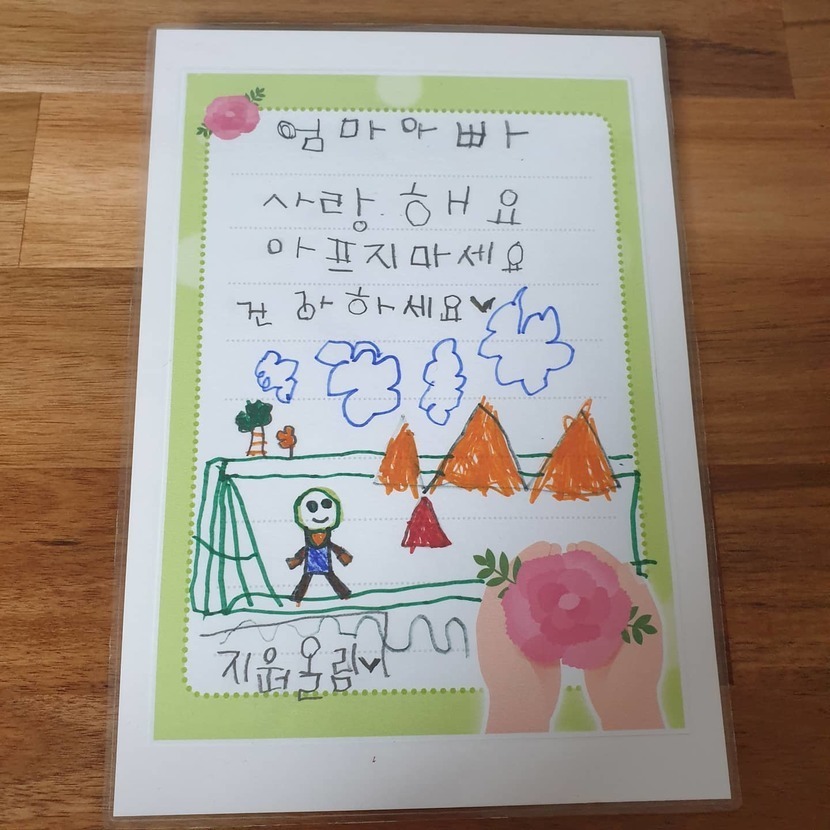 엄마아빠
사랑해요
아프지마세요
건강하세요♥
지원올림♥